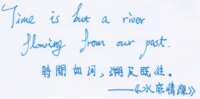 Time is but a river
flowing from our past.
時間如河，溯反既往。
——《水底情深》